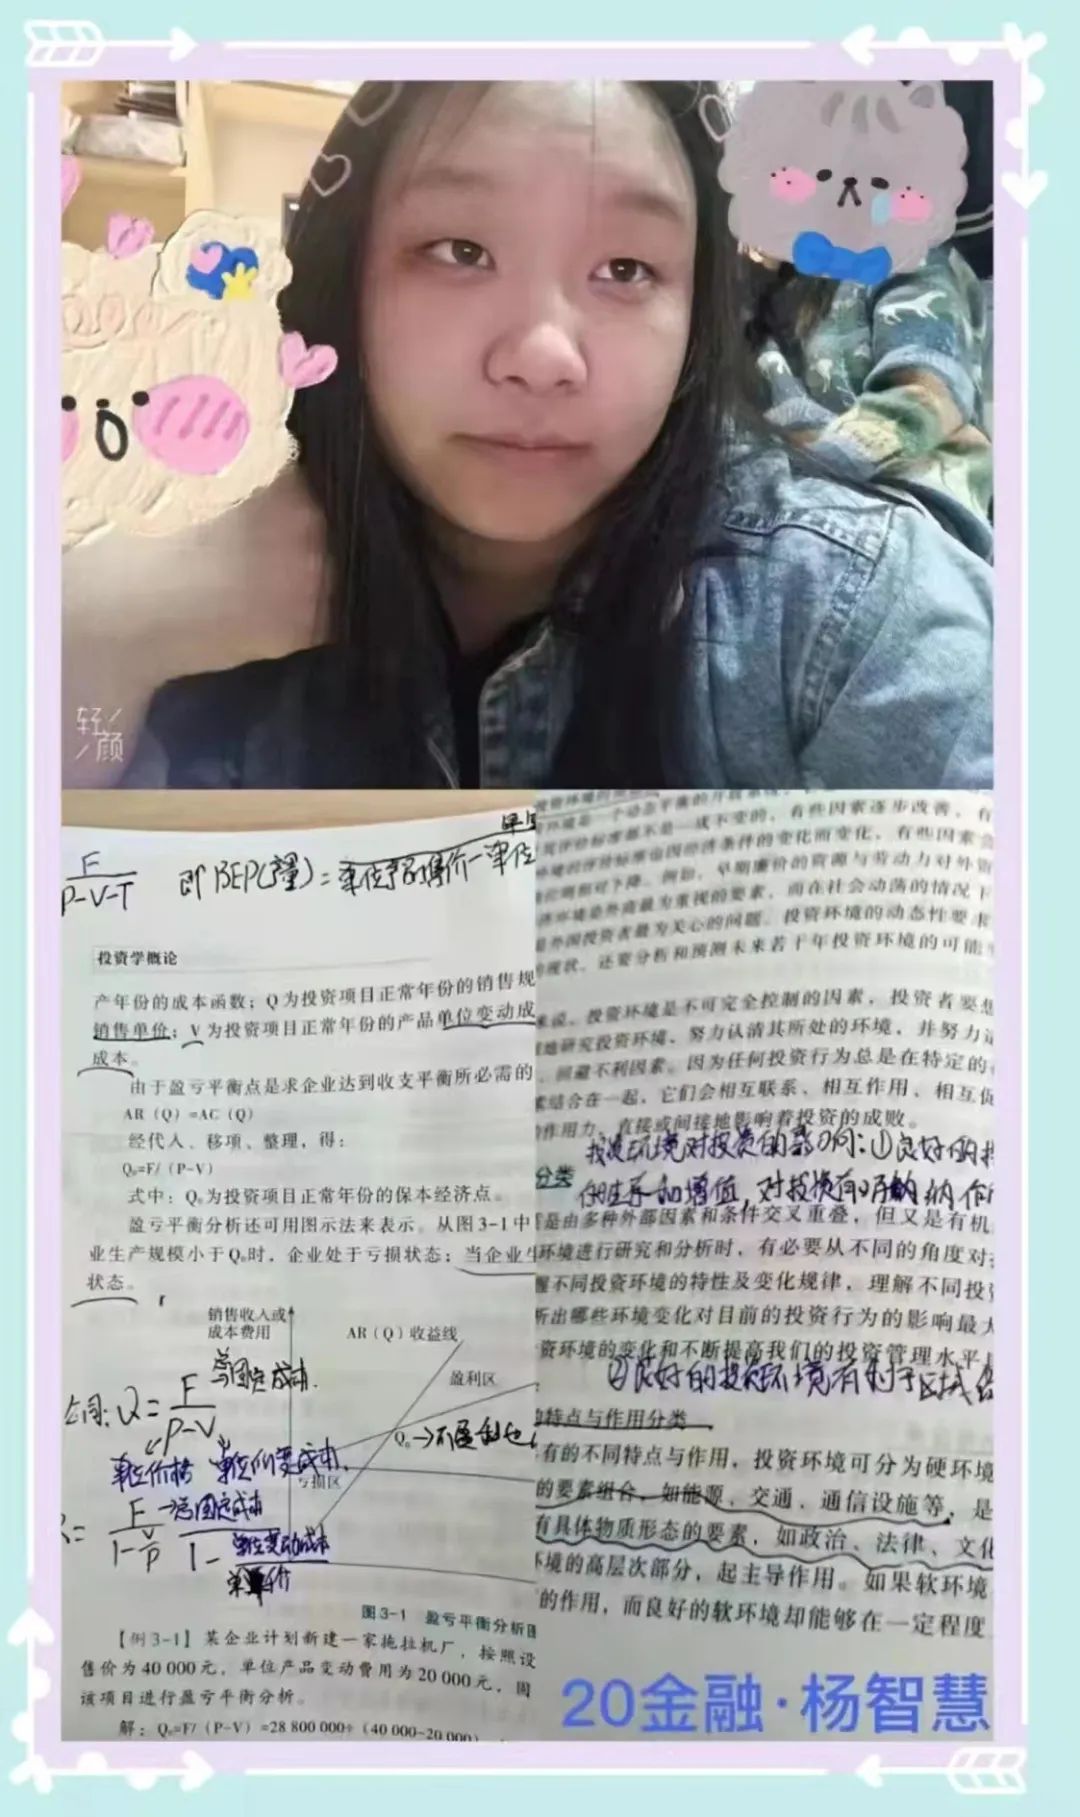 轻颜
F
P-V-T
即BEP(产量)=单位产品售价-单位
投资学概论
产年份的成本函数；Q为投资项目正常年份的销售规
销售单价；V为投资项目正常年份的产品单位变动成
成本。
由于盈亏平衡点是求企业达到收支平衡所必需的
AR（Q）=AC（Q）
经代入、移项、整理，得：
Q₀=F/（P-V）
式中：Q₀为投资项目正常年份的保本经济点。
盈亏平衡分析还可用图示法来表示。从图3-1中
业生产规模小于Q₀时，企业处于亏损状态；当企业生
状态。
销售收入或
成本费用
AR（Q）收益线
盈利区
Q₀→不盈利也
亏损区
总固定成本
Q=F
P-V
单位价格 单位可变成本
F→总固定成本
1-V/P
1-单位变动成本
单价
图3-1 盈亏平衡分析图
【例3-1】某企业计划新建一家拖拉机厂，按照设
售价为40 000元，单位产品变动费用为20 000元，固
该项目进行盈亏平衡分析。
解：Q₀=F/（P-V）=28 800 000÷（40 000-20 000）
环境是一个动态平衡的开放系统，
其评价标准都不是一成不变的，有些因素逐步改善，有
环境的评价标准也因经济条件的变化而变化，有些因素会
位则相对下降。例如，早期廉价的资源与劳动力对外资
环境是外商最为重视的要素，而在社会动荡的情况下
是外国投资者最为关心的问题。投资环境的动态性要求
的现状，还要分析和预测未来若干年投资环境的可能
来说，投资环境是不可完全控制的因素，投资者要想
地研究投资环境，努力认清其所处的环境，并努力适
、回避不利因素。因为任何投资行为总是在特定的
素结合在一起，它们会相互联系、相互作用、相互促
作用力，直接或间接地影响着投资的成败。
投资环境对投资的影响：①良好的投
分类
的生存和增值，对投资有吸纳作用
是由多种外部因素和条件交叉重叠，但又是有机
环境进行研究和分析时，有必要从不同的角度对
握不同投资环境的特性及变化规律，理解不同投资
析出哪些环境变化对目前的投资行为的影响最大
资环境的变化和不断提高我们的投资管理水平
②良好的投资环境有利于区域
的特点与作用分类
有的不同特点与作用，投资环境可分为硬环境
的要素组合，如能源、交通、通信设施等，是
有具体物质形态的要素，如政治、法律、文化
环境的高层次部分，起主导作用。如果软环境
的作用，而良好的软环境却能够在一定程度
20金融·杨智慧